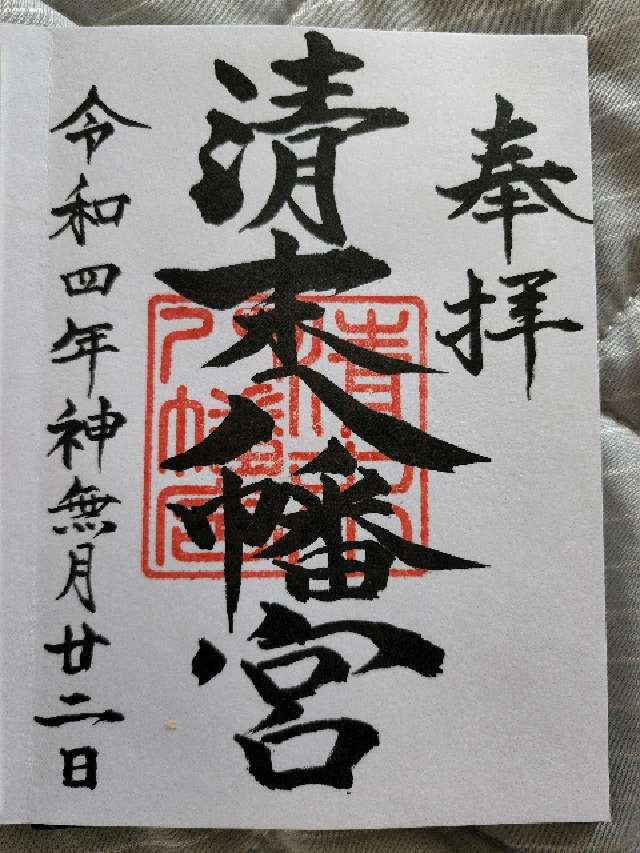 奉拝
清末八幡宮
令和四年神無月廿二日